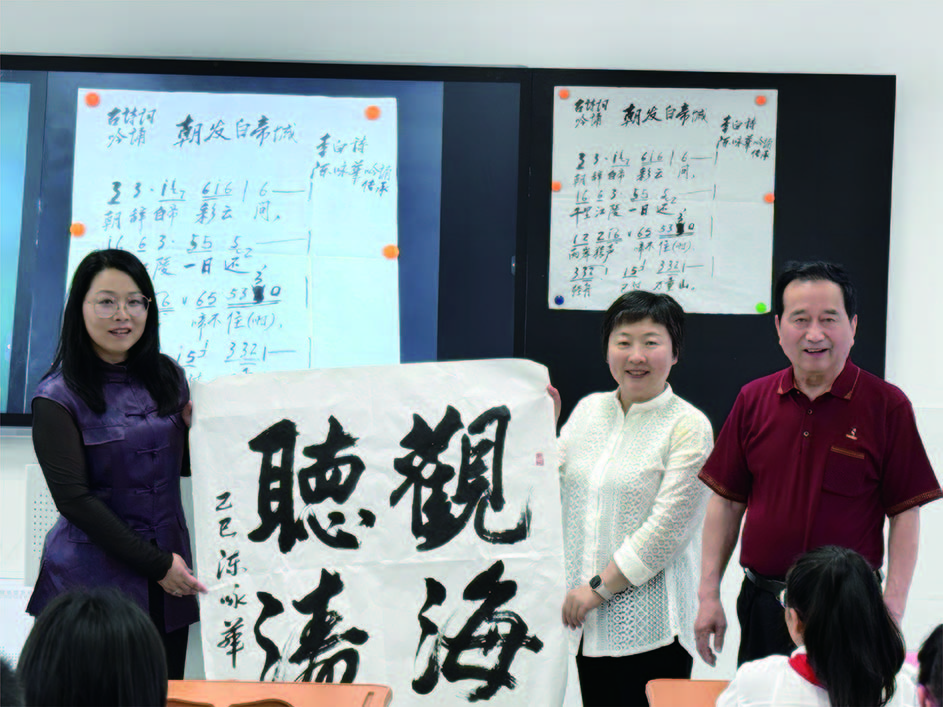 古诗词
吟诵
朝发白帝城
李白诗
陈咏華吟诵
传承
3 3 · i 616 | 6 —
朝辞白帝 彩云 间,
16 6 3 · 55 3 2
陵 一日 还,
6 v 65 53 3 0
啼不 住(啊),
15 332 1 —
古诗词
吟诵
朝发白帝城
李白诗
陈咏華吟诵
传承
3 3 · i 616 | 6 —
朝辞白帝 彩云 间,
16 6 3 · 55 3
千里江陵 一日还,
12 216 v 65 53 3 0
两岸猿声 啼不 住(啊),
332 15 332 1 —
轻舟 万重山。
觀海
聽濤
乙巳陈咏華